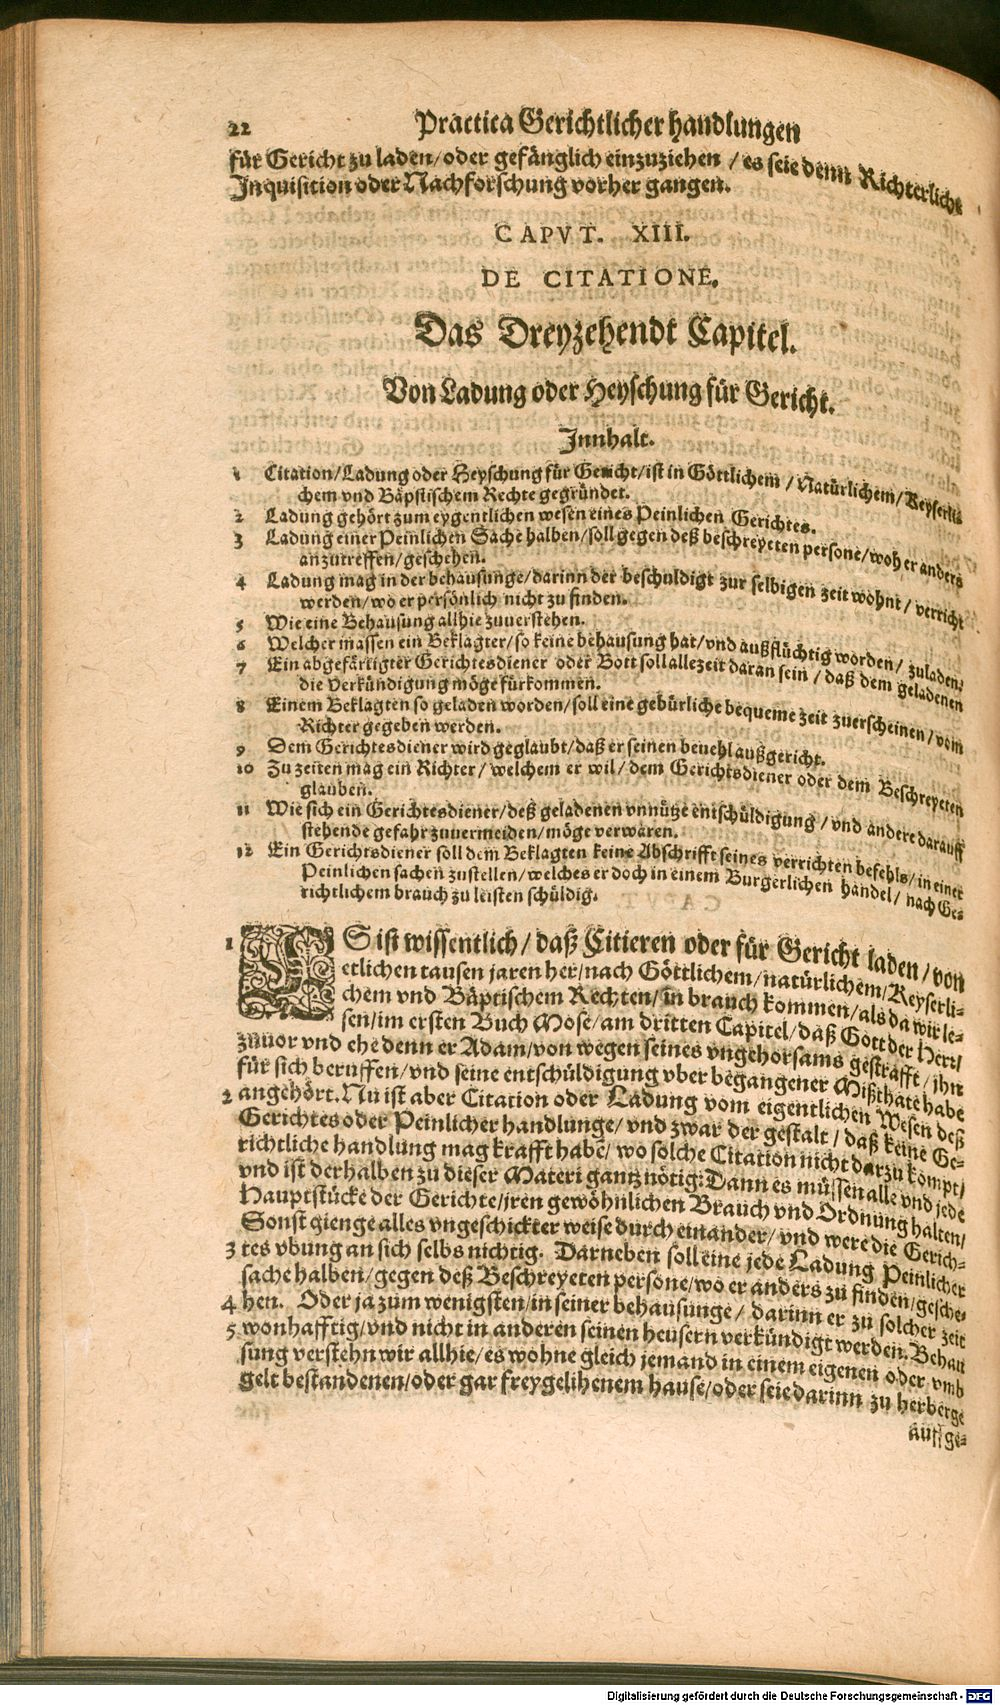 22 Practica Gerichtlicher handlungen
für Gericht zu laden/oder gefänglich einzuziehen / es seie denn Richterliche
Inquisition oder Nachforschung vorher gangen.
CAPVT. XIII.
DE CITATIONE.
Das Dreyzehendt Capitel.
Von Ladung oder Heyschung für Gericht.
Innhalt.
1 Citation/Ladung oder Heyschung für Gericht/ist in Göttlichem / Natürlichem/Keyserli⸗
chem vnd Bäpstischem Rechte gegründet.
2 Ladung gehört zum eygentlichen wesen eines Peinlichen Gerichtes.
3 Ladung einer Peinlichen Sache halben/soll gegen deß beschreyeten persone/woh er anders
anzutreffen/geschehen.
4 Ladung mag in der behausunge/darinn der beschuldigt zur selbigen zeit wohnt / verricht
werden/wo er persönlich nicht zu finden.
5 Wie eine Behausung allhie zuuerstehen.
6 Welcher massen ein Beklagter/so keine behausung hat/vnd außflüchtig worden/ zuladen.
7 Ein abgefärtigter Gerichtesdiener oder Bott soll allezeit daran sein / daß dem geladenen
die verkündigung möge fürkommen.
8 Einem Beklagten so geladen worden/soll eine gebürliche bequeme zeit zuerscheinen / vom
Richter gegeben werden.
9 Dem Gerichtesdiener wird geglaubt/daß er seinen beuehl außgericht.
10 Zu zeiten mag ein Richter / welchem er wil / dem Gerichtsdiener oder dem Beschreyeten
glauben.
11 Wie sich ein Gerichtesdiener/deß geladenen vnnütze entschüldigung / vnd andere darauff
stehende gefahr zuuermeiden/möge verwaren.
12 Ein Gerichtsdiener soll dem Beklagten keine Abschrifft seines verrichten befehls/in einer
Peinlichen sachen zustellen/welches er doch in einem Burgerlichen handel/ nach Ge⸗
richtlichem brauch zu leisten schüldig.
1 ES ist wissentlich / daß Citieren oder für Gericht laden / von
etlichen tausen jaren her/nach Göttlichem/natürlichem/Keyserli⸗
chem vnd Bäptischem Rechten/in brauch kommen/als da wir le⸗
sen/im ersten Buch Mose/am dritten Capitel/daß Gott der Herr/
zuuor vnd ehe denn er Adam/von wegen seines vngehorsams gestrafft / jhn
für sich beruffen/vnd seine entschüldigung vber begangener Mißthate habe
2 angehört. Nu ist aber Citation oder Ladung vom eigentlichen Wesen deß
Gerichtes oder Peinlicher handlunge/ vnd zwar der gestalt / daß keine Ge⸗
richtliche handlung mag krafft habē/ wo solche Citation nicht darzu kompt/
vnd ist derhalben zu dieser Materi gantz nötig: Dann es müssen alle vnd jede
Hauptstücke der Gerichte/jren gewöhnlichen Brauch vnd Ordnung halten/
Sonst gienge alles vngeschickter weise durch einander/ vnd were die Gerich⸗
3 tes vbung an sich selbs nichtig. Darneben soll eine jede Ladung Peinlicher
sache halben/gegen deß Beschreyeten persone/wo er anders zu finden/gesche⸗
4 hen. Oder ja zum wenigsten/in seiner behausunge / darinn er zu solcher zeit
5 wonhafftig/vnd nicht in anderen seinen heusern verkündigt werden. Behau
sung verstehn wir allhie/es wohne gleich jemand in einem eigenen oder vmb
gelt bestandenen/oder gar freygelihenem hause/oder seie darinn zu herberge
auffge⸗
Digitalisierung gefördert durch die Deutsche Forschungsgemeinschaft - DFG